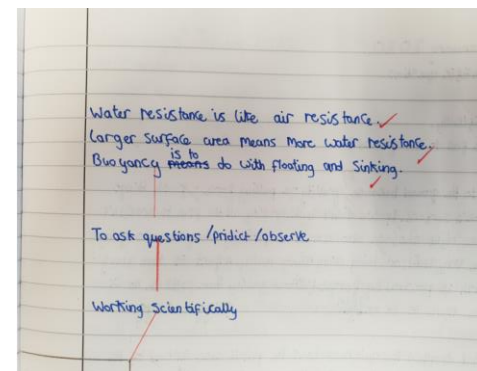 Water resistance is like air resistance.
Larger surface area means more water resistance.
is to
Buoyancy means do with floating and sinking.
To ask questions /pridict /observe
Working scientifically